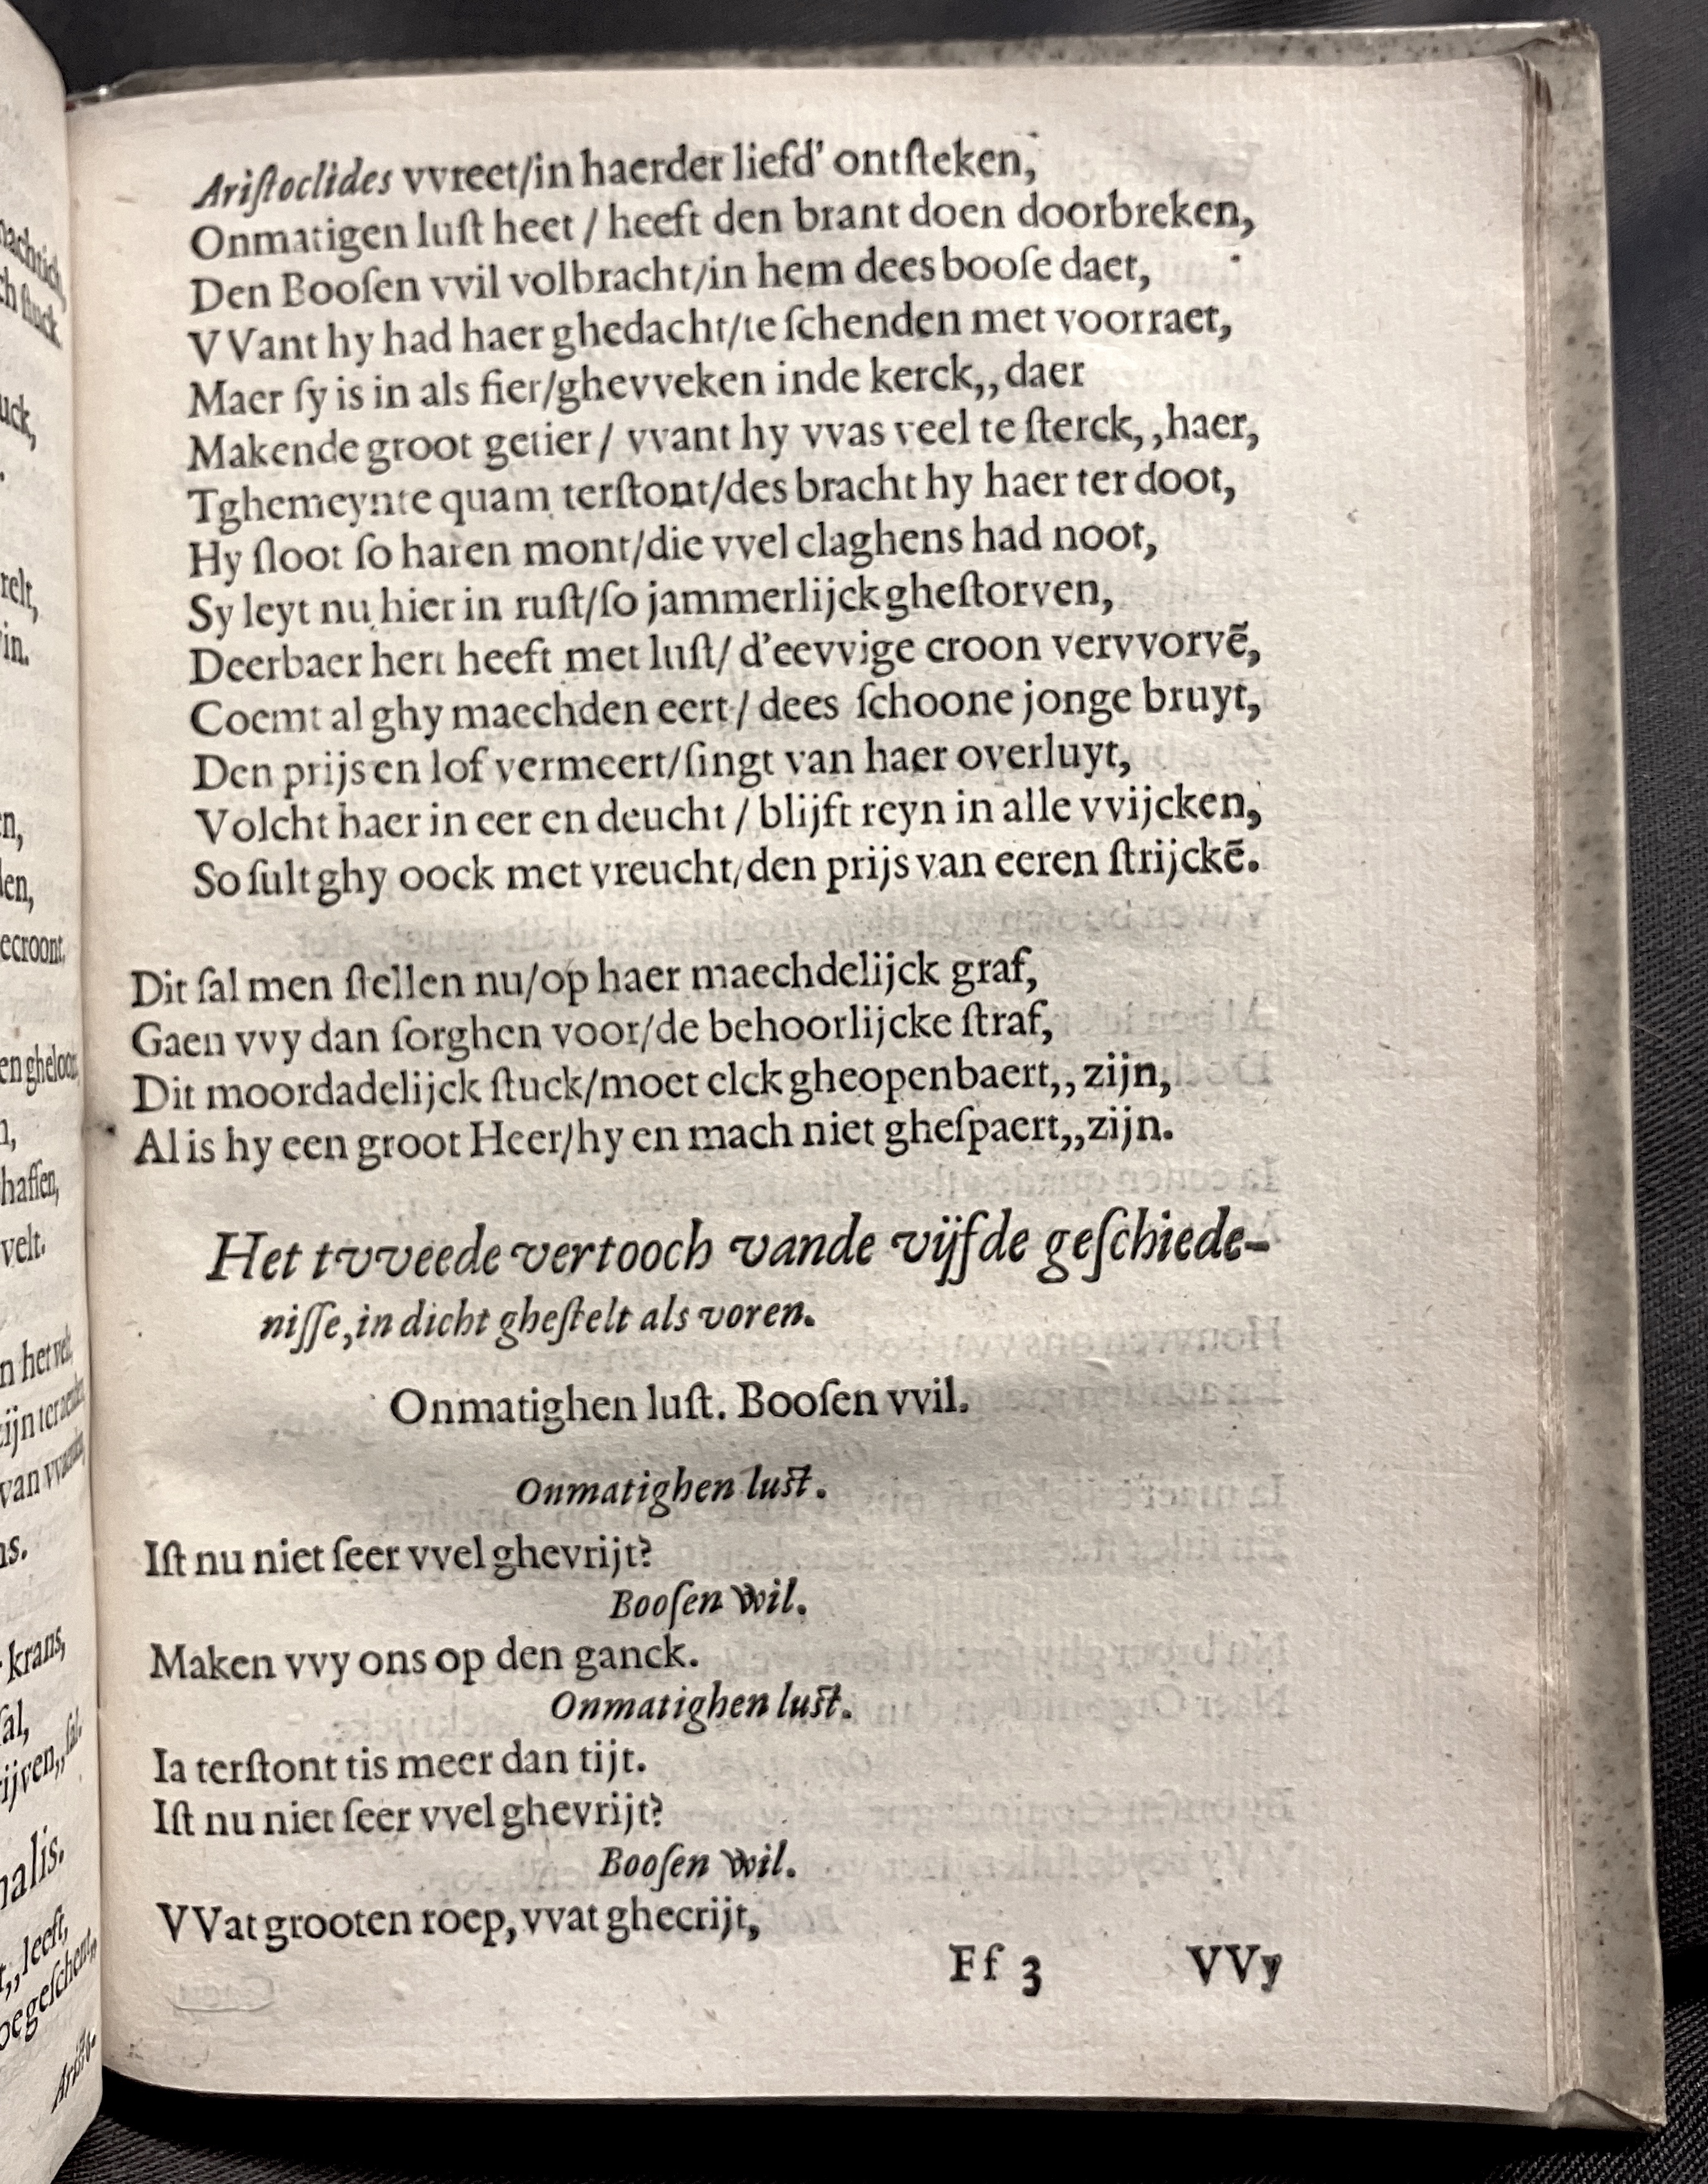 Ariſtoclides vvreet/in haerder liefd' ontſteken,
Onmatigen luſt heet / heeft den brant doen doorbreken,
Den Booſen vvil volbracht/in hem dees booſe daet,
VVant hy had haer ghedacht/te ſchenden met voorraet,
Maer ſy is in als fier/ghevveken inde kerck,,daer
Makende groot getier/ vvant hy vvas veel te ſterck,,haer,
Tghemeynte quam terſtont/des bracht hy haer ter doot,
Hy ſloot ſo haren mont/die vvel claghens had noot,
Sy leyt nu hier in ruſt/ſo jammerlijck gheſtorven,
Deerbaer hert heeft met luſt/ d'eevvige croon vervvorvẽ,
Coemt al ghy maechden eert / dees ſchoone jonge bruyt,
Den prijs en lof vermeert/ſingt van haer overluyt,
Volcht haer in eer en deucht / blijft reyn in alle vvijcken,
So ſult ghy oock met vreucht/den prijs van eeren ſtrijckẽ.
Dit ſal men ſtellen nu/op haer maechdelijck graf,
Gaen vvy dan ſorghen voor/de behoorlijcke ſtraf,
Dit moordadelijck ſtuck/moet elck gheopenbaert,,zijn,
Al is hy een groot Heer/hy en mach niet gheſpaert,,zijn.
Het tvveede vertooch vande vijfde geſchiede-
niſſe,in dicht gheſtelt als voren.
Onmatighen luſt. Booſen vvil.
Onmatighen luſt.
Iſt nu niet ſeer vvel ghevrijt?
Booſen Wil.
Maken vvy ons op den ganck.
Onmatighen luſt.
Ia terſtont tis meer dan tijt.
Iſt nu niet ſeer vvel ghevrijt?
Booſen Wil.
VVat grooten roep, vvat ghecrijt,
Ff 3 VVy